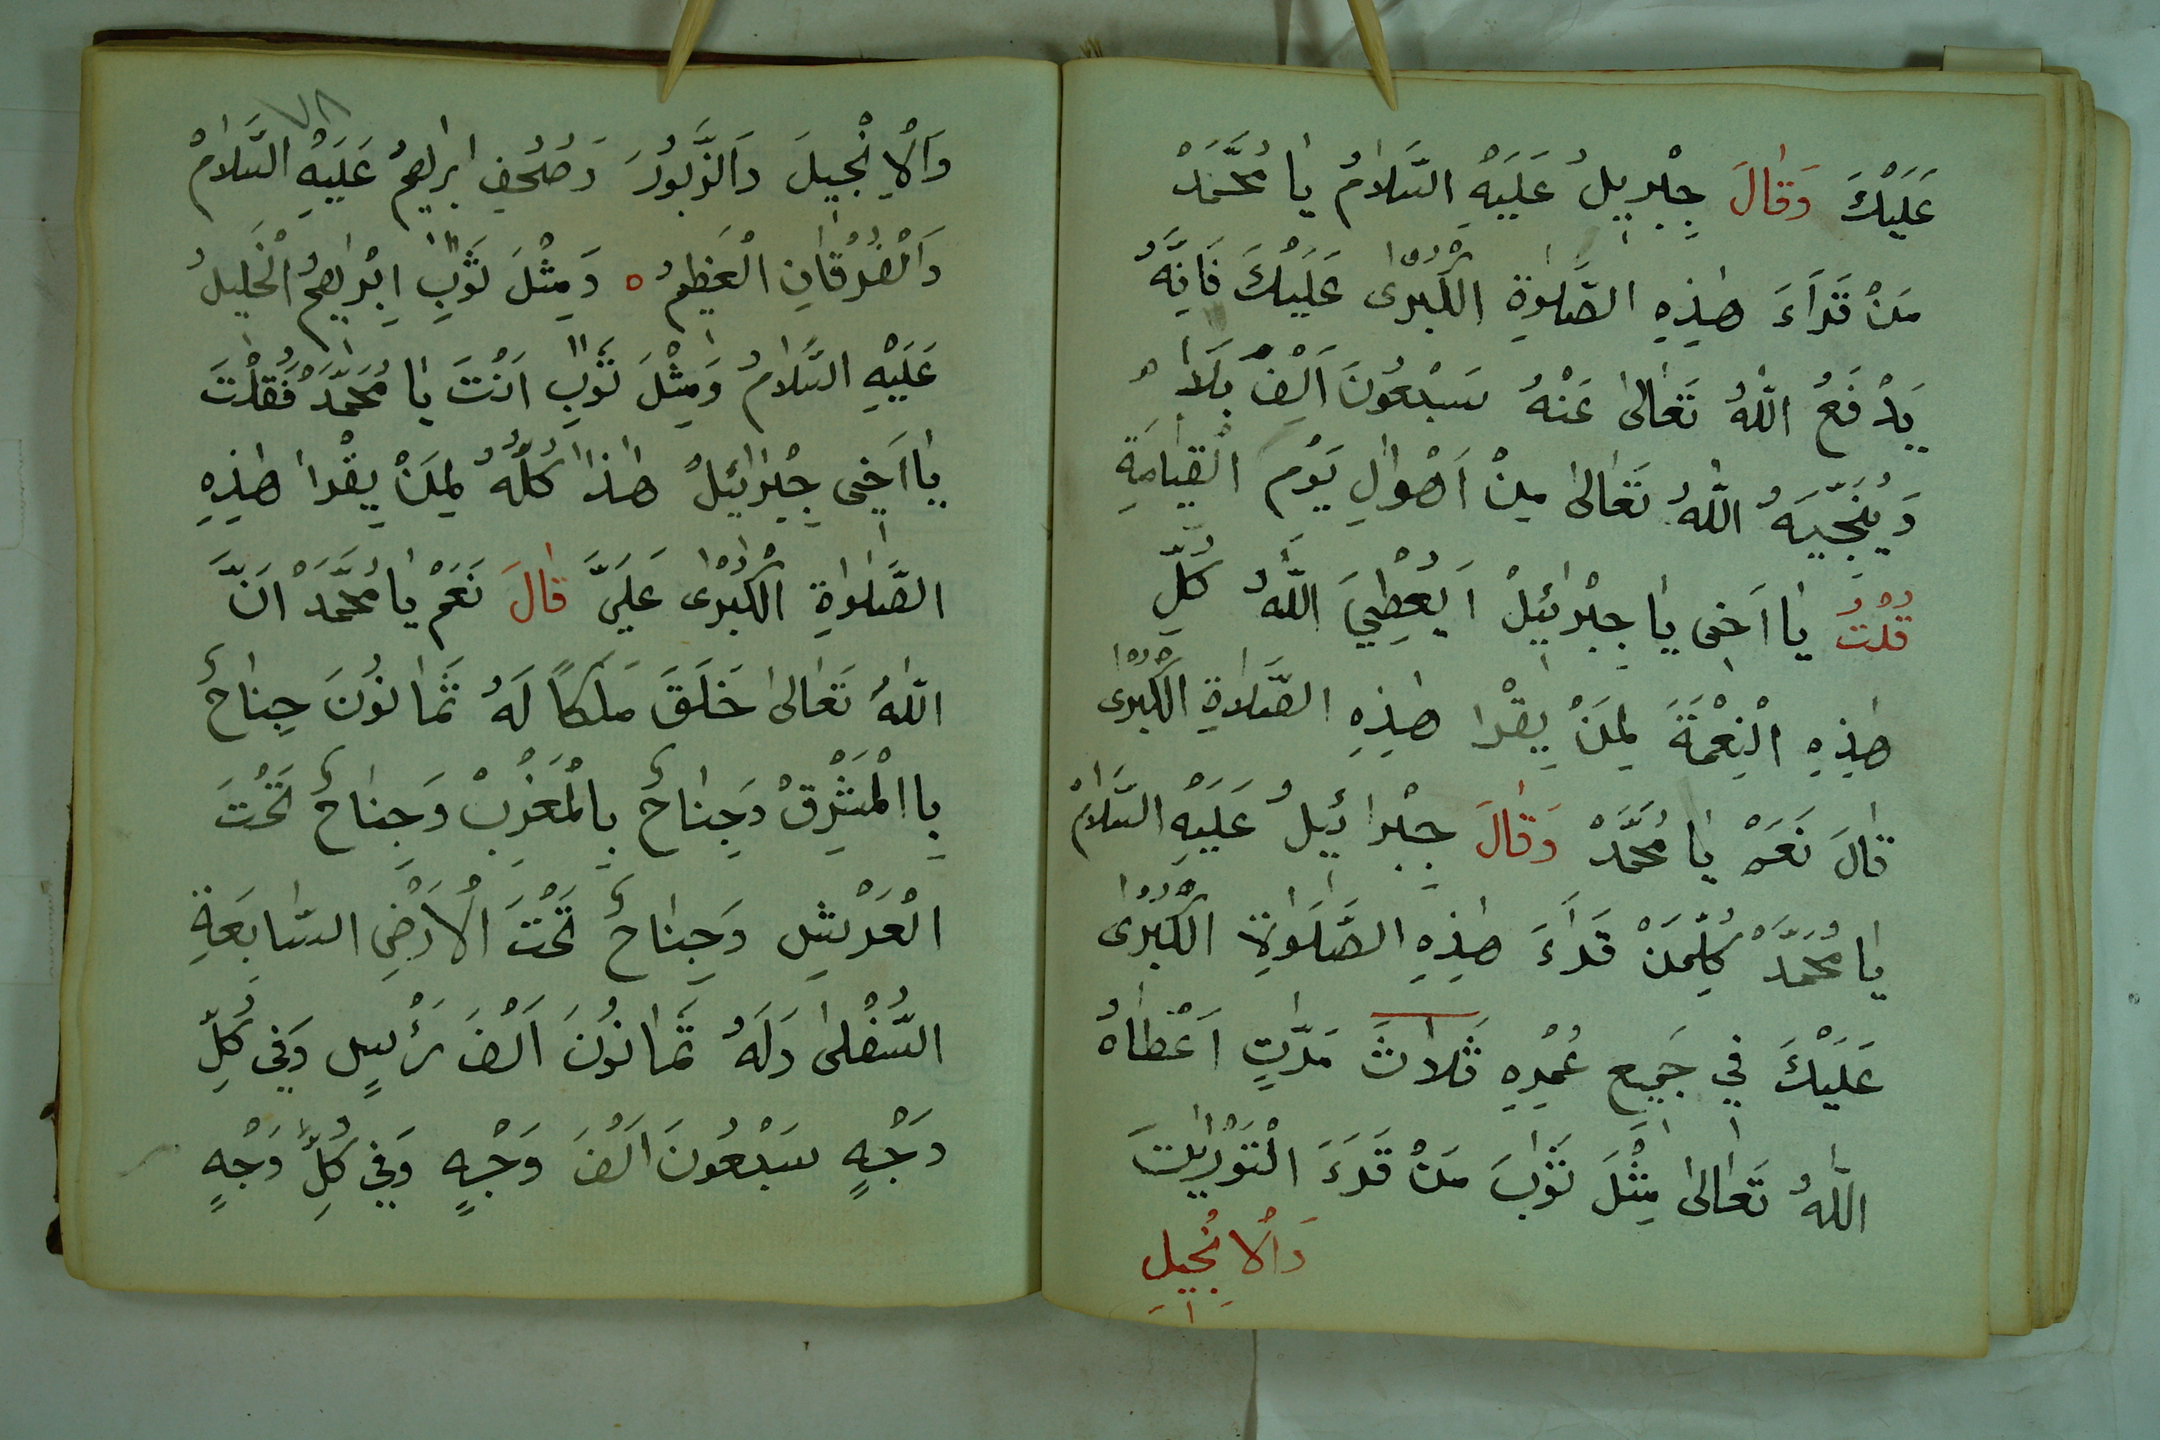 عَلَيْكَ وَقَالَ جِبْرِيلُ عَلَيْهِ السَّلَامُ يَا مُحَمَّدْ
مَنْ قَرَاَءَ هٰذِهِ الصَّلٰوةِ الْكُبْرٰى عَلَيْكَ فَاِنَّهُ
يَدْفَعُ اللّٰهُ تَعَالىٰ عَنْهُ سَبْعُونَ اَلْفْ بَلَاءٍ
وَيُنَجِّيَهُ اللّٰهُ تَعَالىٰ مِنْ اَهْوَالِ يَوْمِ الْقِيَامَةِ
قُلْتُ يَا اَخِى يَا جِبْرَئِيلْ اَيُعْطِيَ اللّٰهُ كُلِّ
هٰذِهِ الْنِعْمَةَ لِمَنْ يِقْرَا هٰذِهِ الصَّلَاةِ الْكُبْرٰى
قَالَ نَعَمْ يَا مُحَمَّدْ وَقَالَ جِبْرَائِيلُ عَلَيْهِ السَّلَامْ
يَا مُحَمَّدْ كُلِّمَنْ قَرَاَءَ هٰذِهِ الصَّلَوٰةِ الْكُبْرٰى
عَلَيْكَ فِي جَمِيعِ عُمْرِهِ ثَلَاثَ مَرَّاتٍ اَعْطَاهُ
اللّٰهُ تَعَالىٰ مِثْلَ ثَوَّابَ مَنْ قَرَءَ الْتَوْرٰيتَ
وَالْاِنْجِيلِ
٧٨
وَالْاِنْجِيلَ وَالزَّبُورَ وَصُحُفِ ابْرٰهِيمُ عَلَيْهِ السَّلَامْ
وَالْفُرْقَانِ الْعَظِيمُ ه وَمِثْلَ ثَوَّابِ اِبْرٰهِيمُ الْخَلِيلُ
عَلَيْهِ السَّلَامُ وَمِثْلَ ثَوَّابِ اَنْتَ يَا مُحَمَّدْ فَقُلْتَ
يَا اَخِى جِبْرَائِيلْ هٰذَا كُلُّهُ لِمَنْ يِقْرَا هٰذِهِ
الصَّلٰوَاةِ الْكُبْرٰى عَلَيَّ قَالَ نَعَمْ يَا مُحَمَّدْ اَنَّ
اللّٰهُ تَعَالىٰ خَلَقَ مَلَكاً لَهُ ثَمَانُونَ جِنَاحٌ
بِاالْمَشْرِقْ وَجِنَاحٌ بِالْمَغْرِبْ وَجِنَاحٌ تَحْتَ
الْعَرْشِ وَجِنَاحٌ تَحْتَ الْاَرْضِ السَّابِعَةِ
السُّفْلىٰ وَلَهُ ثَمَانُونَ اَلْفَ رَئْسٍ وَفِي كُلِّ
وَجْهٍ سَبْعُونَ اَلْفَ وَجْهٍ وَفِي كُلِّ وَجْهٍ